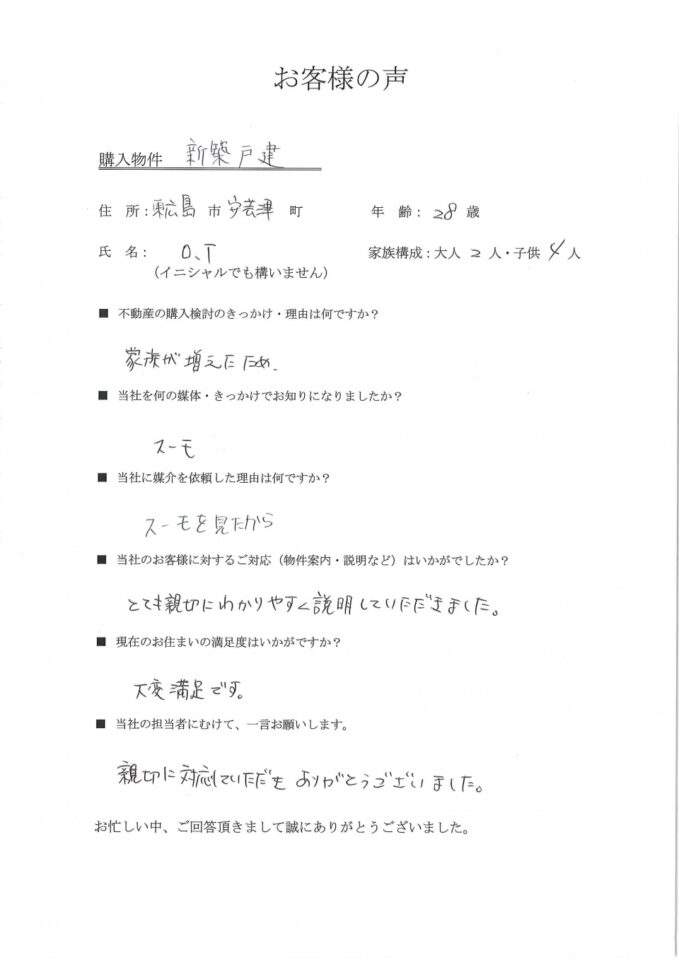 お客様の声
購入物件 新築戸建
住 所：東広島 市 安芸津 町 年 齢： 28 歳
氏 名： O、T 家族構成：大人 2 人・子供 4 人
（イニシャルでも構いません）
■ 不動産の購入検討のきっかけ・理由は何ですか？
家族が増えたため.
■ 当社を何の媒体・きっかけでお知りになりましたか？
スーモ
■ 当社に媒介を依頼した理由は何ですか？
スーモを見たから
■ 当社のお客様に対するご対応（物件案内・説明など）はいかがでしたか？
とても親切にわかりやすく説明していただきました。
■ 現在のお住まいの満足度はいかがですか？
大変満足です。
■ 当社の担当者にむけて、一言お願いします。
親切に対応していただき ありがとうございました。
お忙しい中、ご回答頂きまして誠にありがとうございました。